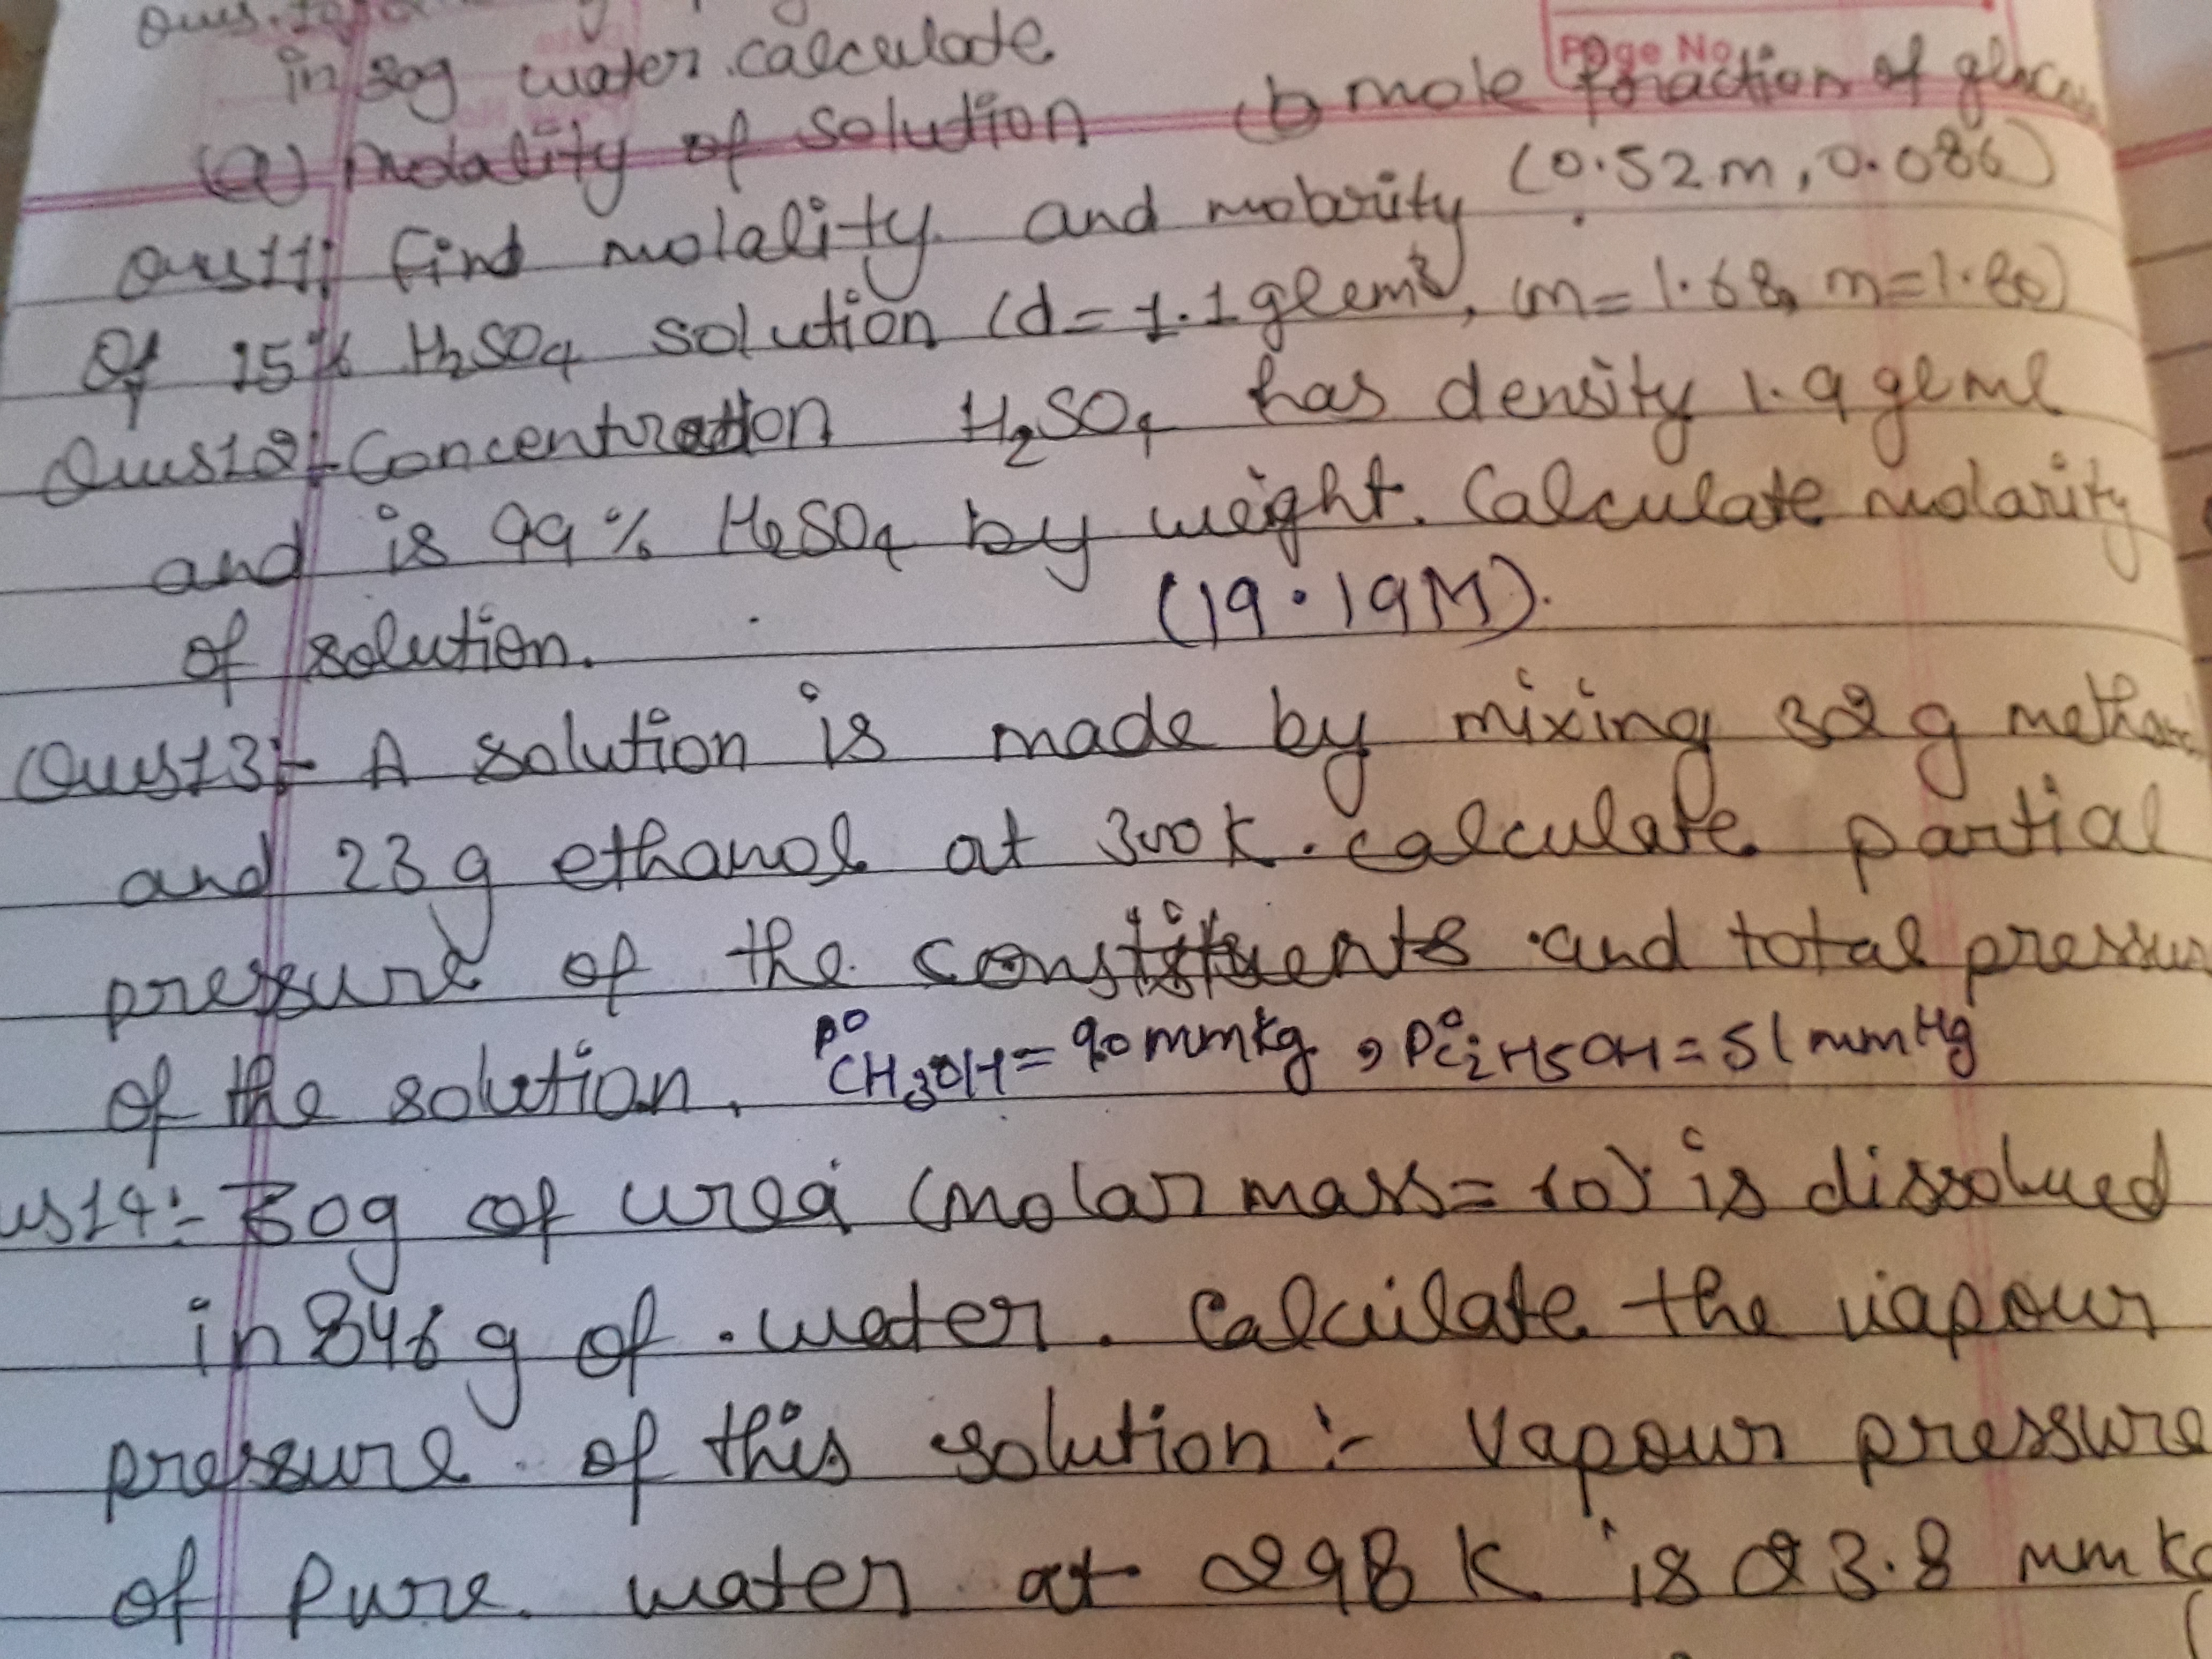 in 30g water. calculate.
(a) Molality of solution (b mole fraction of gluc
Page No.
(0.52m, 0.086)
Ques11: find molality and molarity
of 15% H2SO4 solution (d=1.1g/cm3), (m=1.68, m=1.80)
Ques12:- Concentration H2SO4 has density 1.9 g/ml
and is 99% H2SO4 by weight. Calculate molarity
of solution. (19.19M).
Ques13:- A solution is made by mixing 32 g
and 23 g ethanol at 300 K. Calculate partial
pressure of the constituents and total pressur
of the solution. P° CH3OH = 90 mmHg, P°C2H5OH = 51 mmHg
us14:- 50g of urea (molar mass= 60) is dissolved
in 846 g of water. Calculate the vapour
pressure of this solution :- Vapour pressure
of Pure water at 298 K is 23.8 mmH